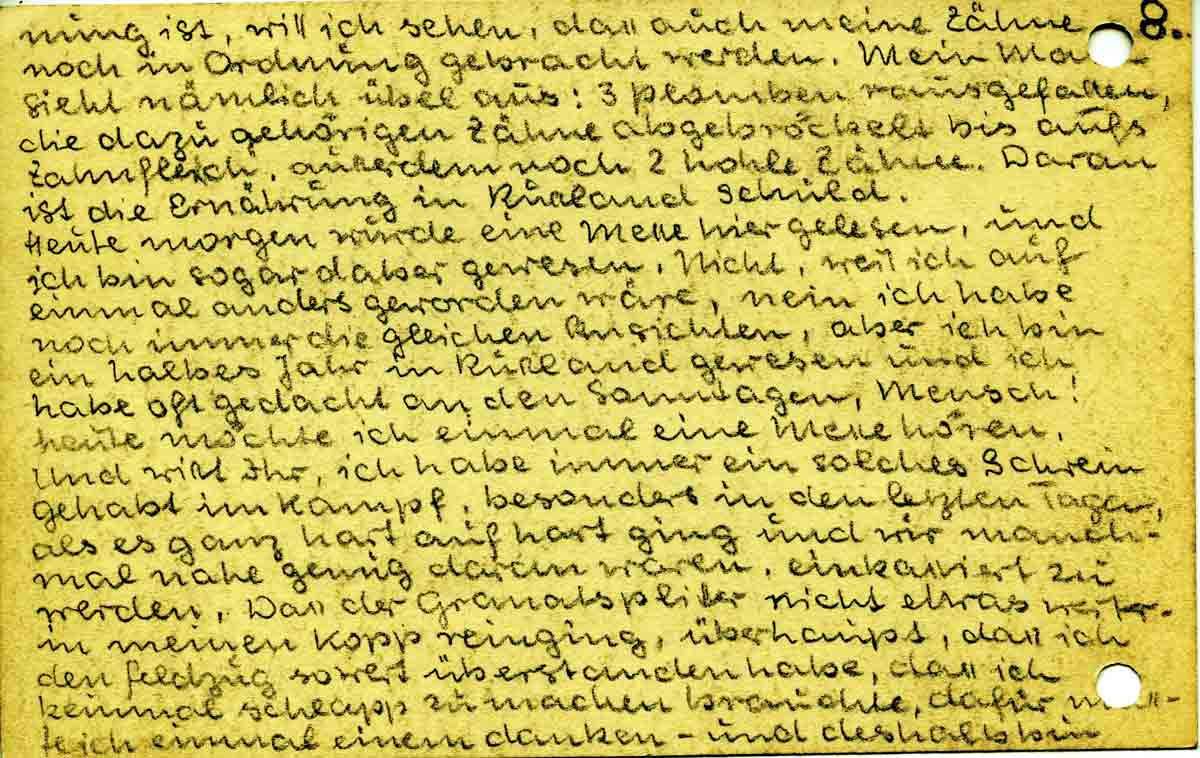 8.
nung ist, will ich sehen, dass auch meine Zähne
noch in Ordnung gebracht werden. Mein
sieht nämlich übel aus: 3 Plomben rausgefallen,
die dazu gehörigen Zähne abgebröckelt bis aufs
Zahnfleich, außerdem noch 2 hohle Zähne. Daran
ist die Ernährung in Rußland Schuld.
Heute morgen wurde eine Messe hier gelesen, und
ich bin sogar dabei gewesen. Nicht, weil ich auf
einmal anders geworden wäre, nein ich habe
noch immer die gleichen Ansichten, aber ich bin
ein halbes Jahr in Rußland gewesen und ich
habe oft gedacht an den Sonntagen, Mensch!
heute möchte ich einmal eine Messe hören.
Und wißt Ihr, ich habe immer ein solches Schwein
gehabt im Kampf, besonders in den letzten Tagen,
als es ganz hart auf hart ging und wir manch-
mal nahe genug daran waren, einkassiert zu
werden. Dass der Granatsplitter nicht etwas weiter
in meinen Kopp reinging, überhaupt, dass ich
den Feldzug soweit überstanden habe, dass ich
keinmal schlapp zu machen brauchte, dafür
te ich einmal einem danken - und deshalb bin